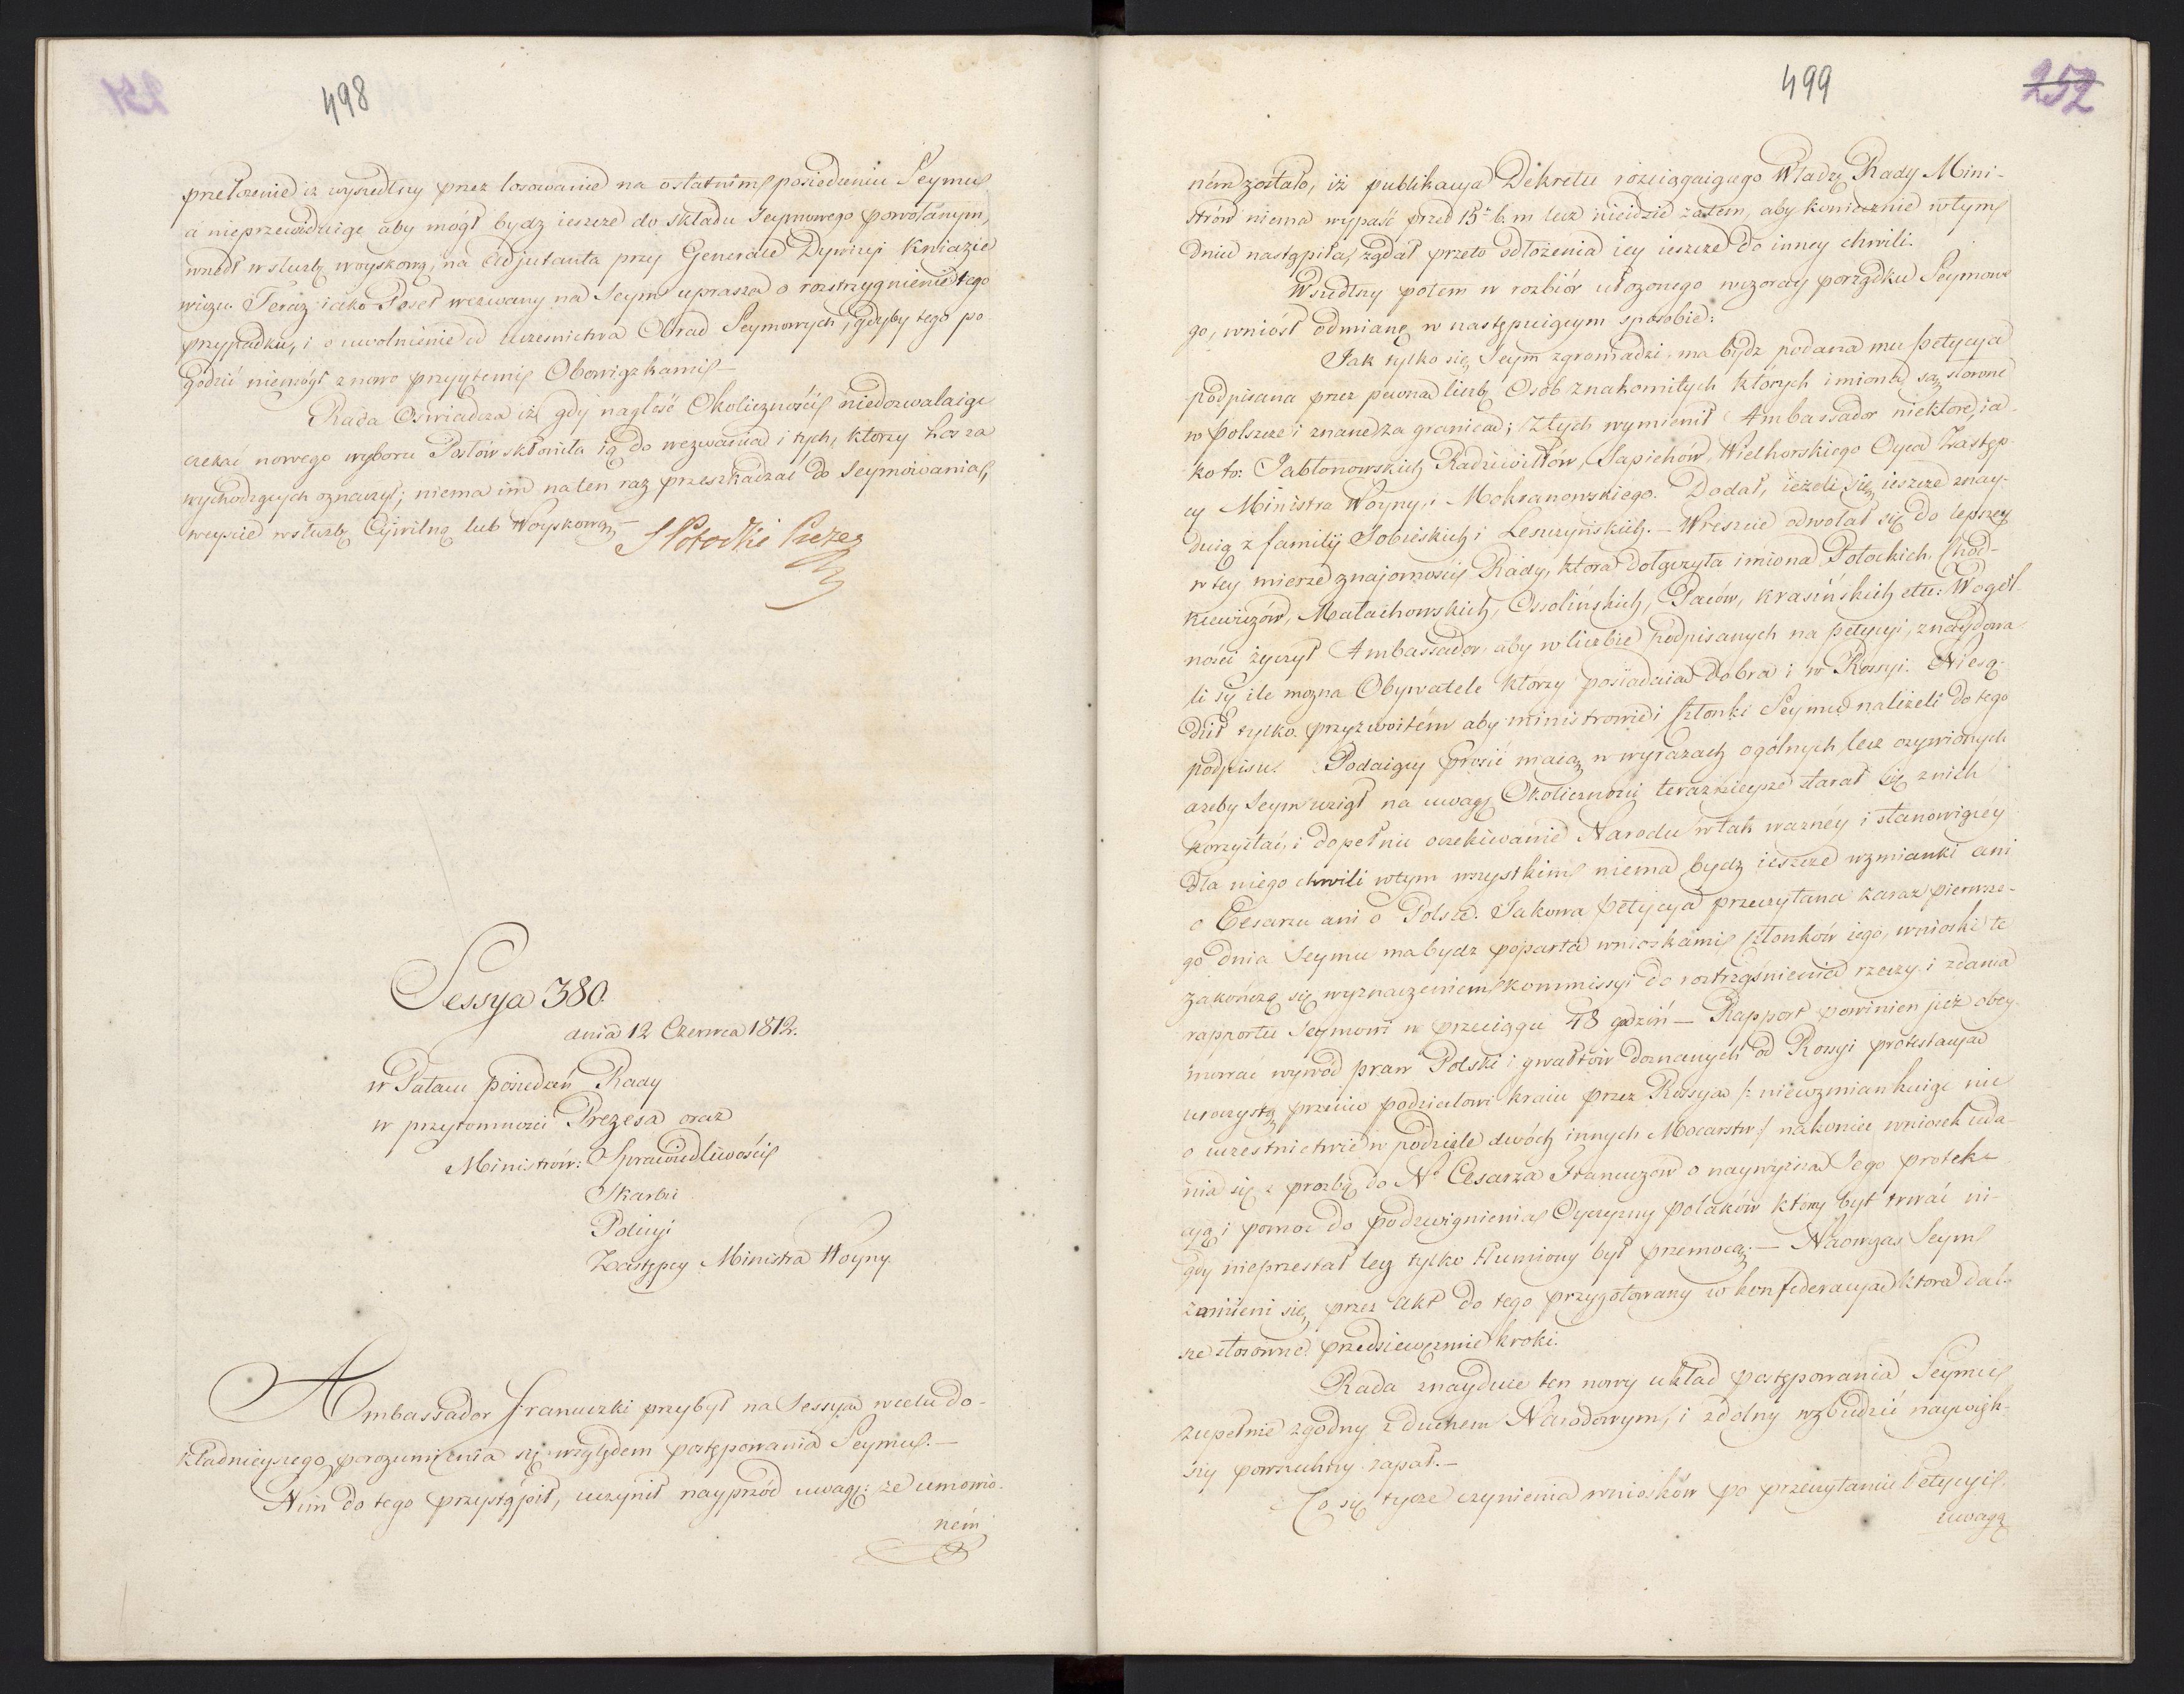 498
przełożenie iż wyszedłszy przez losowanie na ostatnim posiedzeniu Seymu
a nieprzewiduiąc aby mógł bydz ieszcze do składu Seymowego powołanym,
wszedł w służbę woyskową, na Adjutanta przy Generale Dywizyi Kniazie
wiczu. Teraz iako Poseł wezwany na Seym uprasza o rozstrzygnienie tego
przypadku, i o uwolnienie od uczesnictwa Obrad Seymowych, gdyby tego po
godzić niemógł z nowo przyjętemi Obowiązkami –
Rada Oświadcza iż gdy nagłość Okoliczności niedozwalaiąc
czekać nowego wyboru Posłów skłoniła ią do wezwania i tych, którzy Los za
wychodzących oznaczył; niema im na ten raz przeszkadzać do Seymowania,
weyście w służbę Cywilną lub Woyskową –
S Potocki Prezes
Sessya 380.
dnia 12 Czerwca 1812.
w Pałacu posiedzeń Rady
w przytomności Prezesa oraz
Ministrów: Sprawiedliwości
Skarbu
Policyi
Zastępcy Ministra Woyny
Ambassador Francuzki przybył na Sessyą w celu do-
kładnieyszego porozumienia się względem postępowania Seymu. –
Nim do tego przystąpił, uczynił nayprzód uwagę: że umówio-
ném
499
252
ném zostało, iż publikacya Dekretu rozciągaiącego Władzę Rady Mini-
strów niema wypaść przed 15. b. m lecz nieidzie zatem, aby koniecznie w tym
dniu nastąpiła, żądał przeto odłożenia iey ieszcze do inney chwili.
Wszedłszy potem w rozbiór ułożonego wczoray porządku Seymowe
go, wniósł odmianę w następuiącym sposobie:
Jak tylko się Seym zgromadzi, ma bydz podana mu petycya
podpisana przez pewną liczbę Osób znakomitych których imiona są sławne
w Polszcze i znane za granicą; z tych wymienił Ambassador niektóre, ia-
ko to: Jabłonowskich, Radziwiłłów, Sapiehów, Wielhorskiego Oyca Zastęp-
cy Ministra Woyny, i Mokranowskiego. Dodał, ieżeli się ieszcze znay-
duią z familij Sobieskich i Leszczyńskich. – Wreszcie odwołał się do lepszey
w tey mierze znajomości Rady, która dołączyła imiona Potockich, Chod-
kiewiczów, Małachowskich, Ossolińskich, Paców, Krasińskich etc: W ogól-
ności życzył Ambassador, aby w liczbie podpisanych na petycyi, znaydowa-
li się ile można Obywatele którzy posiadaią Dobra i w Rossyi. Niesą-
dził tylko przyzwoitém aby ministrowie i Członki Seymu należeli do tego
podpisu. Podaiący prosić maią w wyrazach ogólnych, lecz ożywionych
ażeby Seym wziął na uwagę Okoliczności teraźnieysze starał się z nich
korzystać, i dopełnić oczekiwanie Narodu w tak ważnéy i stanowiącey
dla niego chwili w tym wszystkim niema bydz ieszcze wzmianki ani
o Cesarzu ani o Polsce. Takowa petycya przeczytana zaraz pierwsze-
go dnia Seymu ma bydz poparta wnioskami członków iego, wnioski te
zakończą się wyznaczeniem kommissyi do roztrząśnienia rzeczy i zdania
rapportu Seymowi w przeciągu 48 godzin – Rapport powinien już obey-
mować wywód praw Polski i gwałtów doznanych od Rossyi protestacyą
uroczystą przeciw podziałowi kraiu przez Rossyą /: niewzmiankuiąc nic
o uczestnictwie w podziale dwóch innych Mocarstw :/ nakoniec wniosek uda-
nia się z prozbą do N. Cesarza Francuzów o naywyższą Jego protek-
cyą i pomoc do podzwignienia Oyczyzny polaków który byt trwać ni-
gdy nieprzestał lecz tylko tłumiony był przemocą. – Naówczas Seym
zamieni się przez akt do tego przygotowany w konfederacyą która dal-
sze stosowne przedsięweźmie kroki.
Rada znayduie ten nowy układ postępowania Seymu
zupełnie zgodny z duchem Narodowym, i zdolny wzbudzić naywięk-
szy powszechny zapał. –
Co się tycze czynienia wniosków po przeczytaniu Petycyi,
uwagą